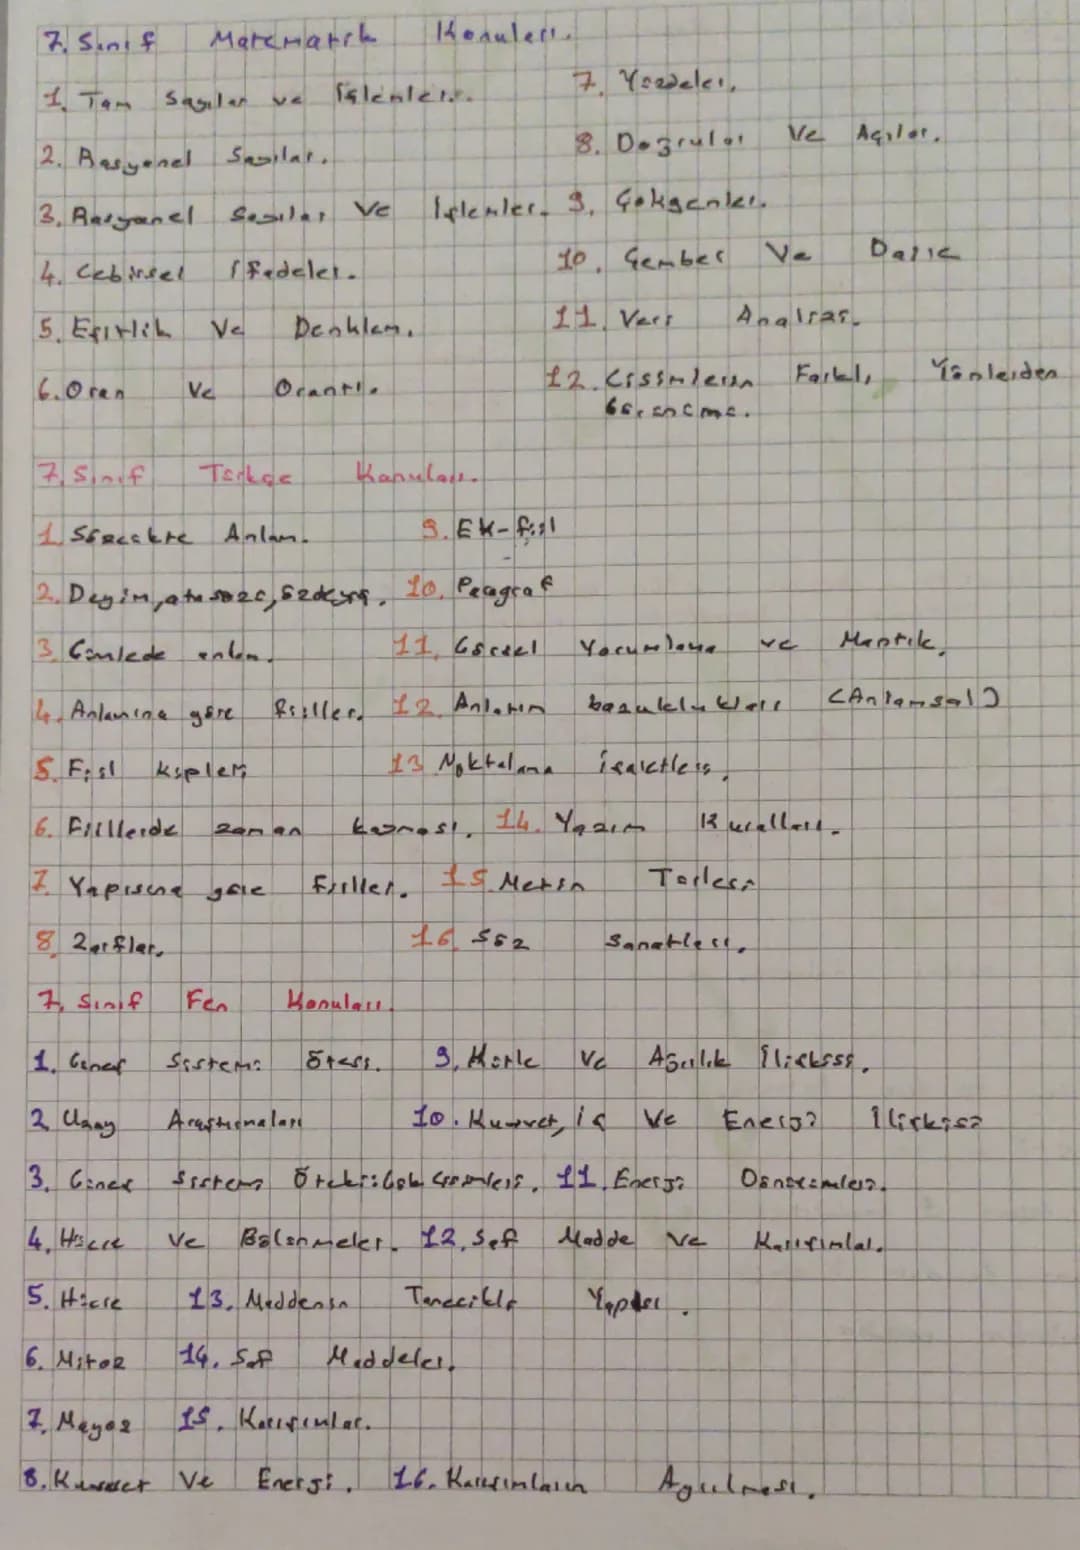 7. Sınıf Matematik Konuları.
1. Tam Sayılar ve İşlemler.
2. Rasyonel Sayılar.
3. Rasyonel Sayılar Ve İşlemler.
4. Cebirsel İfadeler.
5. Eşitlik Ve Denklem.
6. Oran Ve Orantı.
7. Yüzdeler.
8. Doğrular Ve Açılar.
9. Çokgenler.
10. Çember Ve Daire
11. Veri Analizi.
12. Cisimlerin Farklı Yönlerden
Görünümü.
7. Sınıf Türkçe Konuları.
1. Sözcükte Anlam.
2. Deyim, atasözü,
3. Cümlede anlam.
4. Anlamına göre fiiller.
5. Fiil kipleri
6. Fiillerde zaman kayması.
7. Yapısına göre Fiiller.
8. Zarflar.
9. Ek-fiil
10. Paragraf
11. Görsel Yorumlama ve Mantık.
12. Anlatım bozuklukları (Anlamsal)
13. Noktalama işaretleri.
14. Yazım Kuralları.
15. Metin Türleri
16. Söz Sanatları.
7. Sınıf Fen Konuları.
1. Güneş Sistemi Ötesi.
2. Uzay Araştırmaları
3. Güneş Sistemi Ötesi: Gök Cisimleri.
4. Hücre ve Bölünmeler.
5. Hücre
6. Mitoz
7. Mayoz
8. Kuvvet Ve Enerji.
9. Kütle Ve Ağırlık İlişkisi.
10. Kuvvet, iş Ve Enerji İlişkisi
11. Enerji Dönüşümleri.
12. Saf Madde ve Karışımlar.
13. Maddenin Tanecikli Yapısı.
14. Saf Maddeler.
15. Karışımlar.
16. Karışımların Ayrılması.